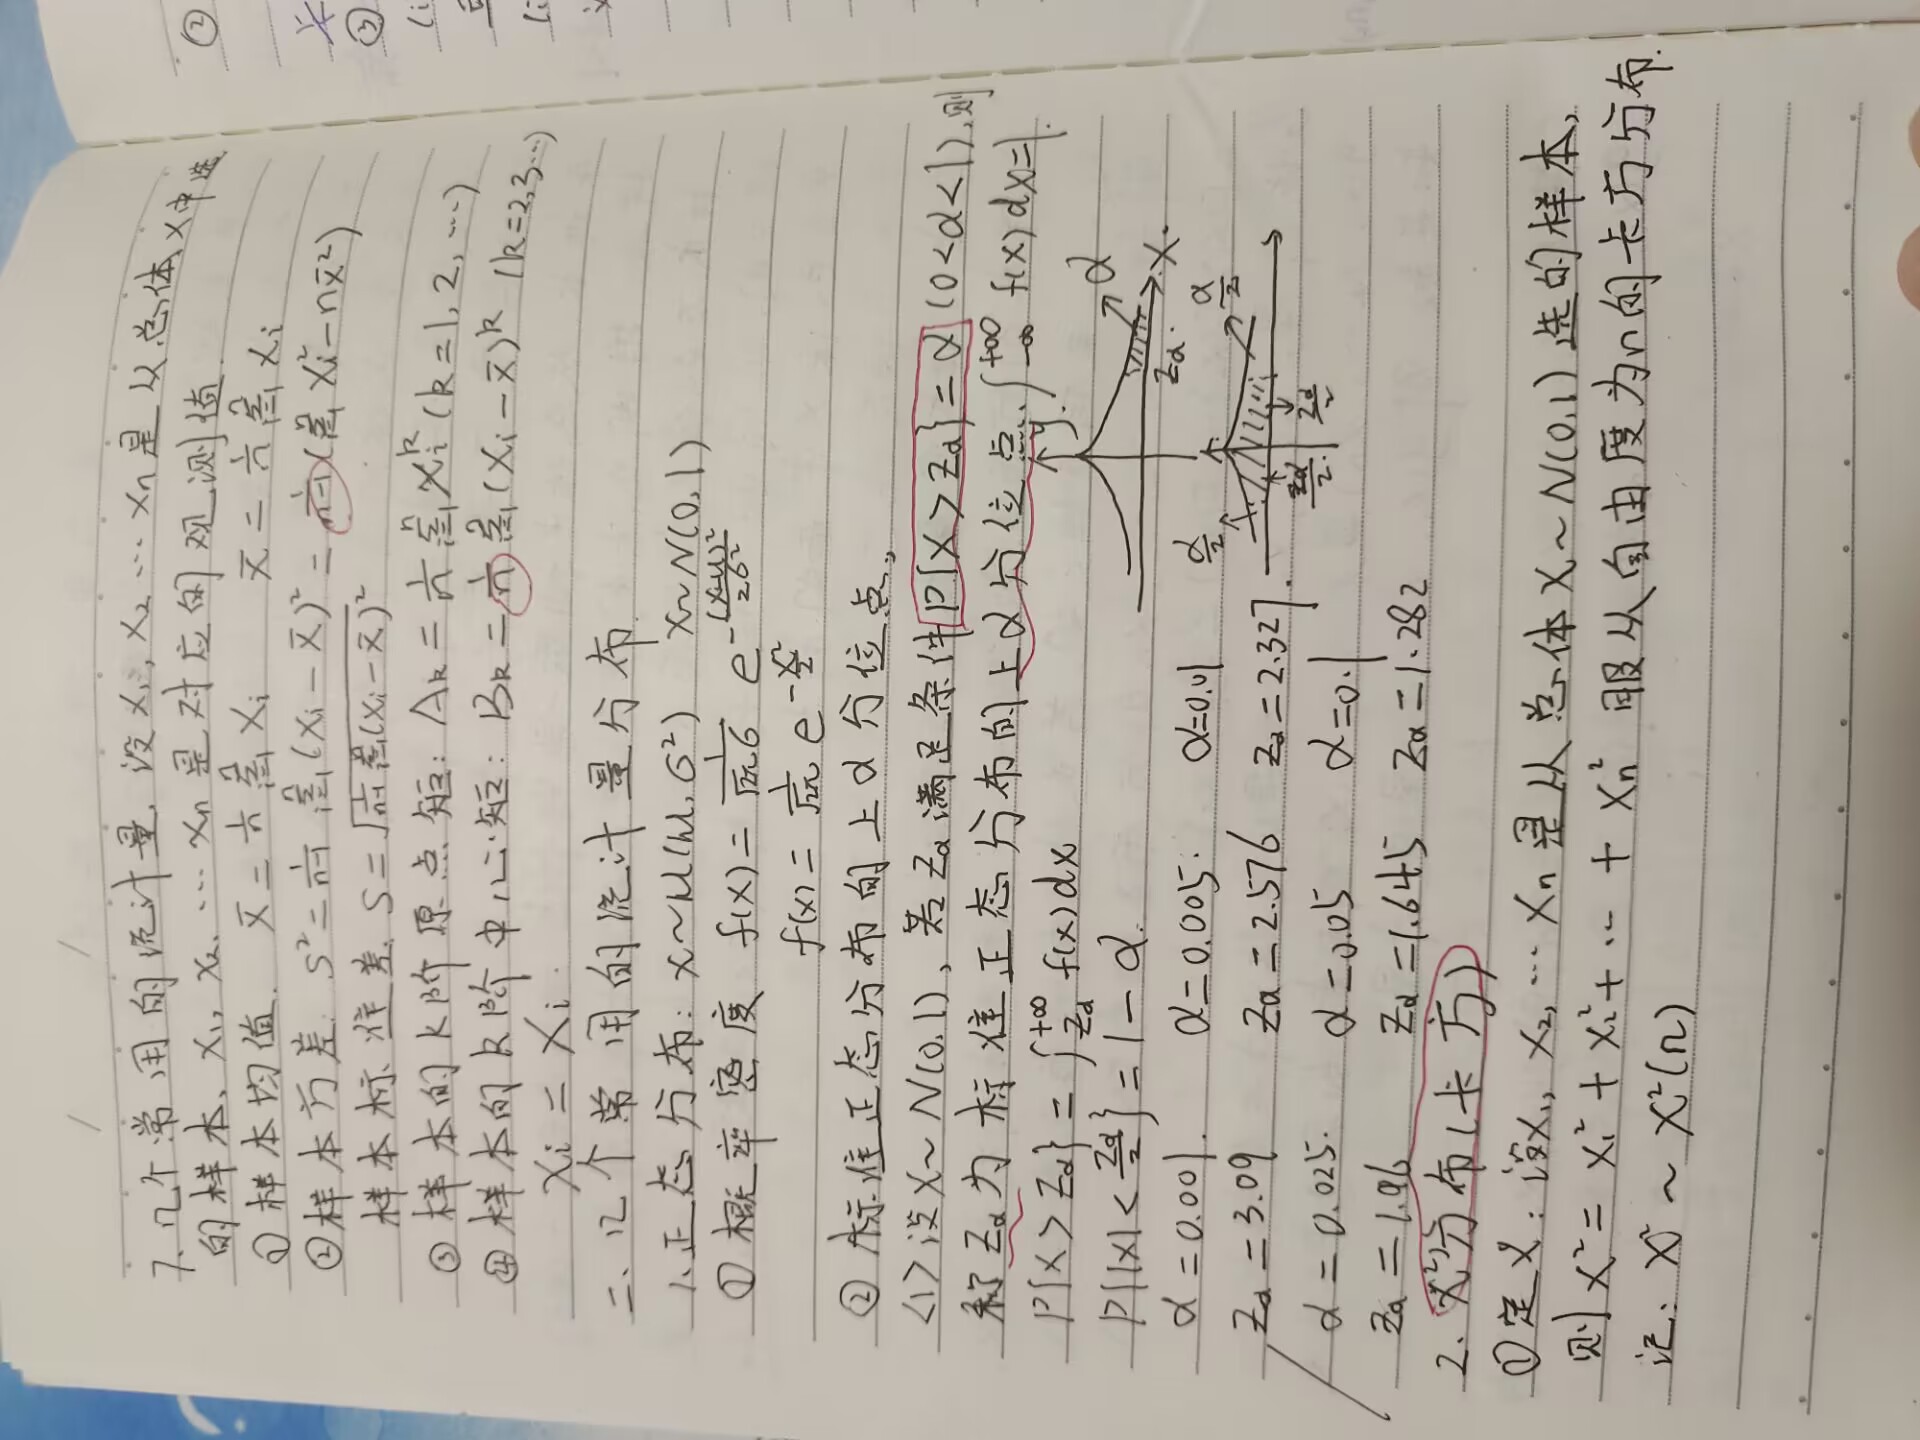 7、几个常用的统计量,设X₁,X₂…Xn是从总体X中选
的样本,x₁,x₂,…xn是对应的观测值
①样本均值. X̄=1/n Σ(i=1→n) Xi  x̄=1/n Σ(i=1→n) xi
②样本方差. S²=1/(n-1) Σ(i=1→n)(Xi-X̄)²=1/(n-1)(Σ(i=1→n) Xi²-nX̄²)
样本标准差. S=√(1/(n-1) Σ(i=1)(Xi-X̄)²)
③样本的k阶原点矩: Ak=1/n Σ(i=1→n) Xi^k (k=1,2,…)
④样本的k阶中心矩: Bk=1/n Σ(i=1→n)(Xi-X̄)^k (k=2,3,…)
Xi=Xi
二、几个常用的统计量分布.
1、正态分布: X~N(μ,σ²) X~N(0,1)
①概率密度 f(x)=1/(√2π σ) e^-(x-μ)²/2σ²
f(x)=1/√2π e^-x²/2
②标准正态分布的上α分位点,
<1>设X~N(0,1),若Zα满足条件P{X>Zα}=α(0<α<1),则
称Zα为标准正态分布的上α分位点. ∫(-∞→+∞) f(x)dx=1.
P{X>Zα}=∫(Zα→+∞) f(x)dx
P{|X|<Zα/2}=1-α.
y
α
Zα.
X.
α/2
α/2
Zα/2
Zα/2
α=0.001. α=0.005. α=0.01
Zα=3.09 Zα=2.576 Zα=2.327.
α=0.025. α=0.05 α=0.1
Zα=1.96 Zα=1.645 Zα=1.282
2、X²分布(卡方)
①定义:设X₁,X₂,…Xn是从总体X~N(0,1)选的样本,
则X²=X₁²+X₂²+…+Xn² 服从自由度为n的卡方分布.
记: X²~X²(n)
②
③